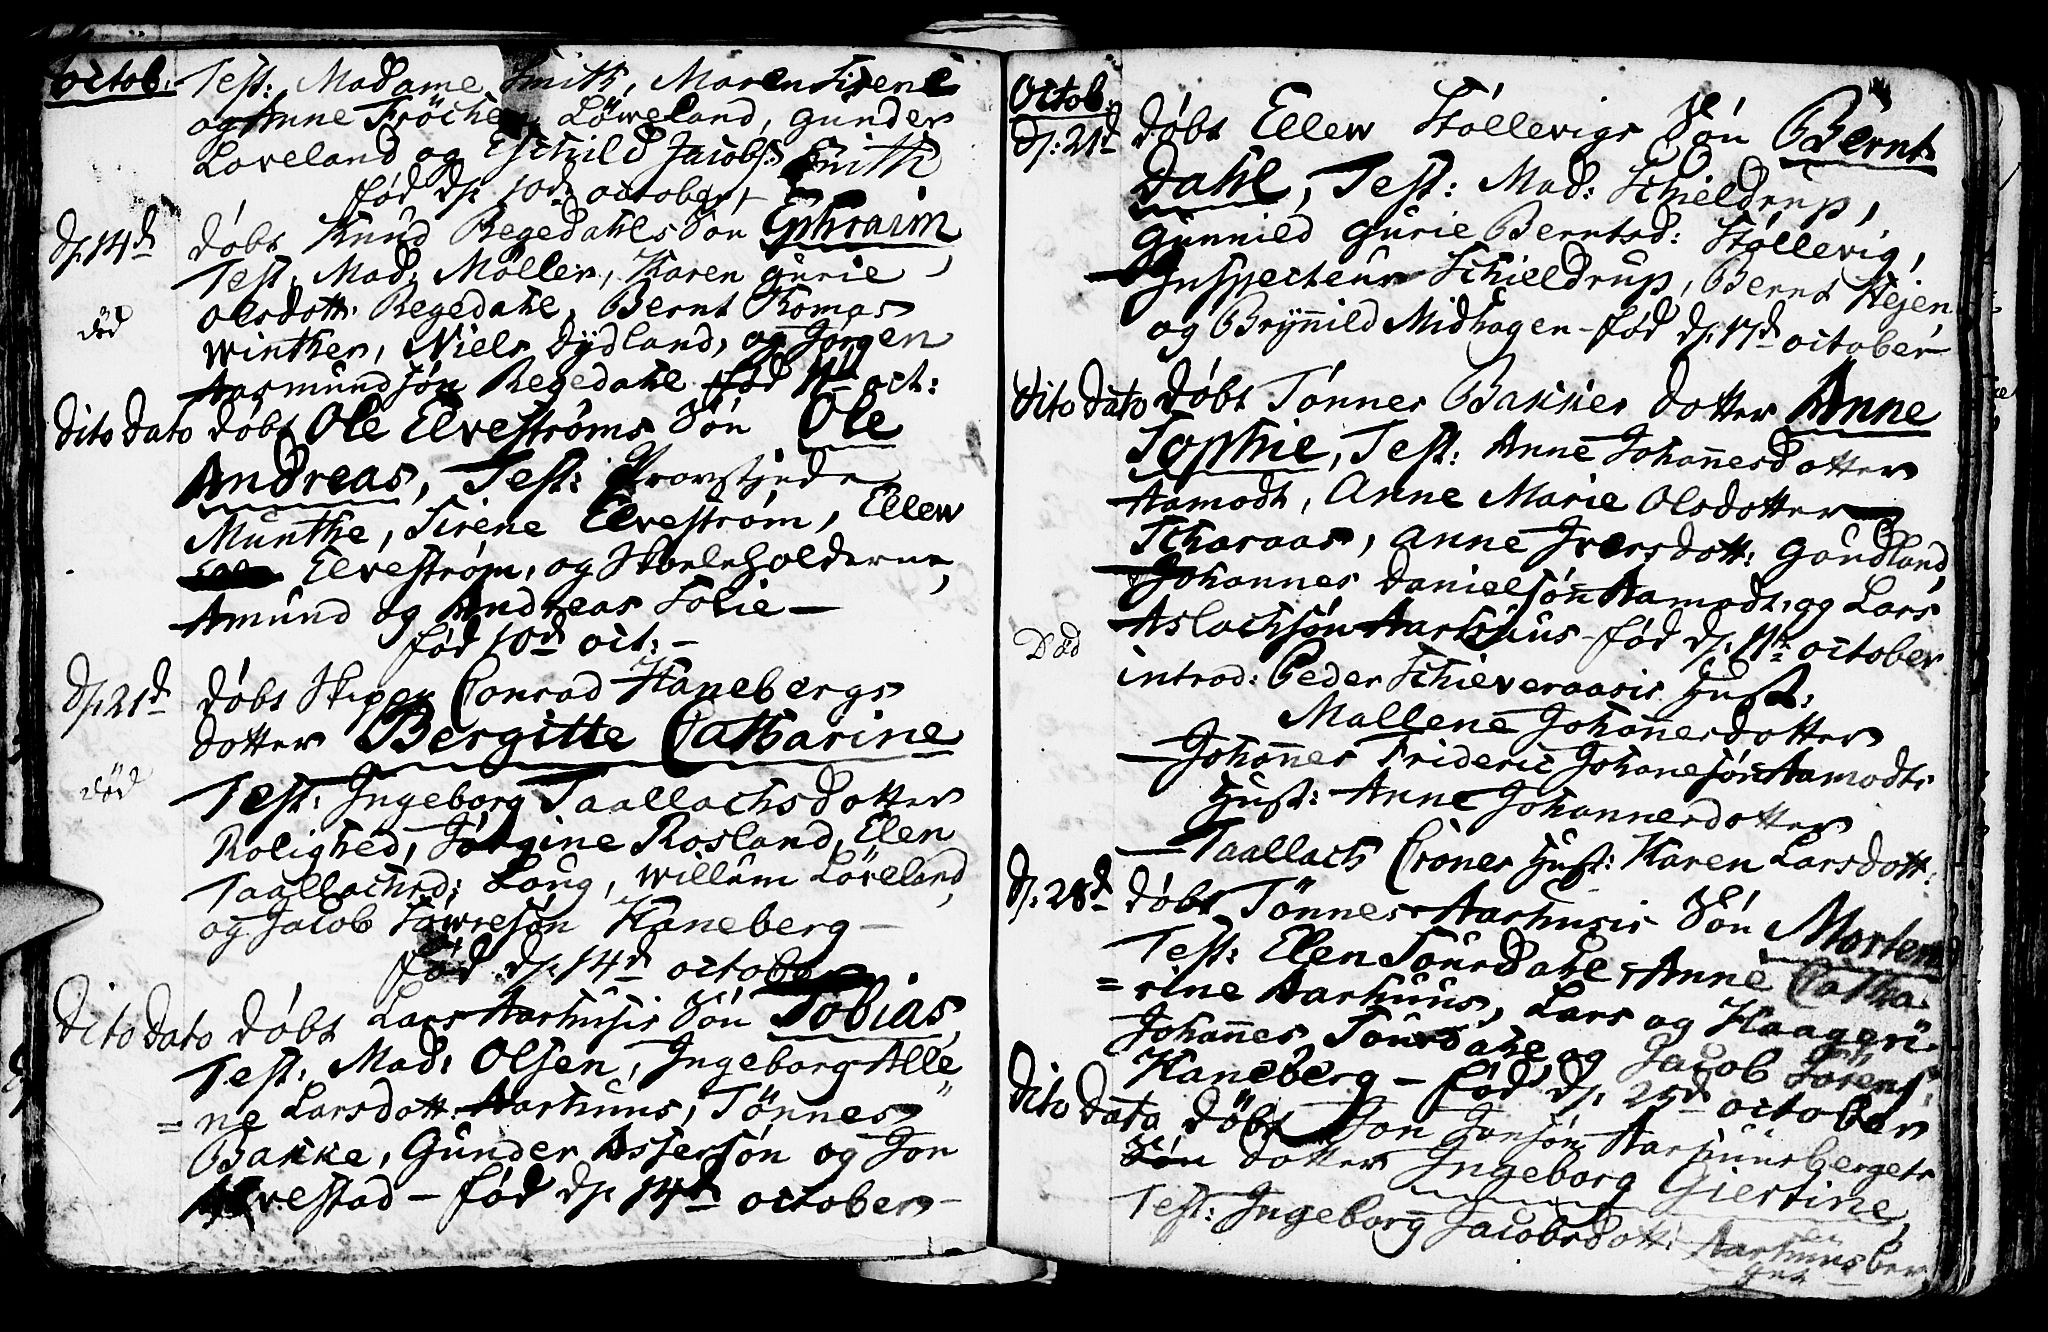 octob. Test: Madame Smith, Maren Sirene
og Anne Fröchen Löveland, Gunder
Loveland og Eschild Jacobs: Smith
fød d: 10d october
d: 14d døbt Knud Regedahls Søn Ephraim
Test: Mad: Möller, Karen Gurie
død Olsdott: Regedahl, Bernt Thomas
Winther, Niels Dydland, og Jørgen
Aasmundsøn Regedahl fød 11t oct:
dito dato døbt Ole Elvestrøms Søn Ole
Andreas, Test: Provstinden
Munthe, Sirene Elvestrøm, Ellew
Elvestrøm, og Skoleholderne,
Amund og Andreas Folie —
fød 10d oct: —
d: 21d døbt Skiper Conrad Hanebergs
dotter Bergitte Catharine
død Test: Ingeborg Taallachsdotter
Rolighed, Jørgine Rosland, Elen
Taallachsd: Loug, Willum Löveland,
og Jacob Sørensøn Haneberg —
fød d: 14d october
dito dato døbt Lars Aarhusis Søn Tobias,
Test: Mad: Olsen, Ingeborg Alle
=ne Larsdott: Aarhuus, Tönnes
Bakke, Gunder Assersøn og Jon
Alvestad — fød d: 14d october —
Octob.
d: 21d døbt Ellew Stöllevigs Søn Bernt
Dahl, Test: Mad: Schieldrup,
Gunnild Gurie Berntsd: Stöllevig,
Inspecteur Schieldrup, Bernt Hejen
og Brÿnnild Midhagen — fød d: 17d october
dito dato døbt Tönnes Bakkes dotter Anne
Sophie, Test: Anne Johannesdotter
Aamodt, Anne Marie Olsdotter
Scharaas, Anne Iversdott: Goudland,
Johannes Danielsøn Aamodt, og Lars
Aslachsøn Aarhuus — fød d: 11t october
Död
introd: Peder Schieveraasis Hust:
Mallene Johannesdotter
— Johannes Frideric Johanesøn Aamodts
Hust: Anne Johannesdotter
— Taallach Crones Hust: Karen Larsdott:
d: 28d døbt Tönnes Aarhusis Søn Morten
Test: Elen Sourdahl, Anne Catha-
=rine Aarhuus, Lars og Haageri
Johannes Sourdahl og Jacob Sörens:
Haneberg — fød d: 25d october
dito dato döbt Jon Jonsøn Aarhuusbergets
Søn dotter Ingeborg Giertine,
Test: Ingeborg Jacobsdott: Aarhuusber
get